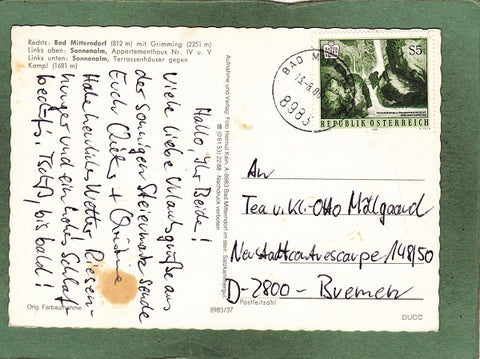 Rechts: Bad Mitterndorf (812 m) mit Grimming (2351 m)
Links oben: Sonnenalm, Appartementhaus Nr. IV u. V
Links unten: Sonnenalm, Terrassenhäuser gegen
Kampl (1681 m)
Hallo, Ihr Beide!
Viele liebe Urlaubsgrüße aus
der sonnigen Steiermark sende
Euch +
Habe herrliches Wetter Riesen-
hunger und ein hohes Schlaf-
bedürfn. Tschß, bis bald!
Orig. Farbaufnahme
Aufnahme und Verlag: Foto Helmut Kain, A-8983 Bad Mitterndorf im steir. Salzkammergut,
☎ (0 61 53) 22 88 Nachdruck verboten
8983/37
BAD M
8983
S5
REPUBLIK ÖSTERREICH
An
Tea u. Kl.-Otto Mölgaard
Neustadtcontrescarpe 148/50
D-2800- Bremen
Postleitzahl
DUCC